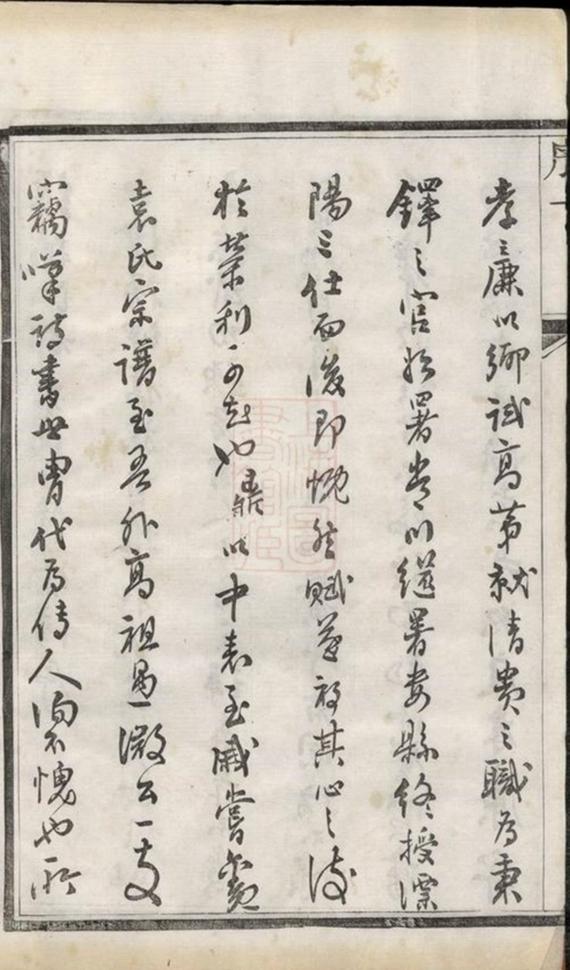 孝廉以鄉試高第就清貴之職為秉
鐸之官於署出門繼署婁縣終授溧
陽之仕而後即慨然賦其心之淡
於榮利可知也鼎以中表至戚嘗覽
袁氏宗譜至吾外高祖愚澂公一支
竊嘆詩書世胄代為傳人洵不愧也所